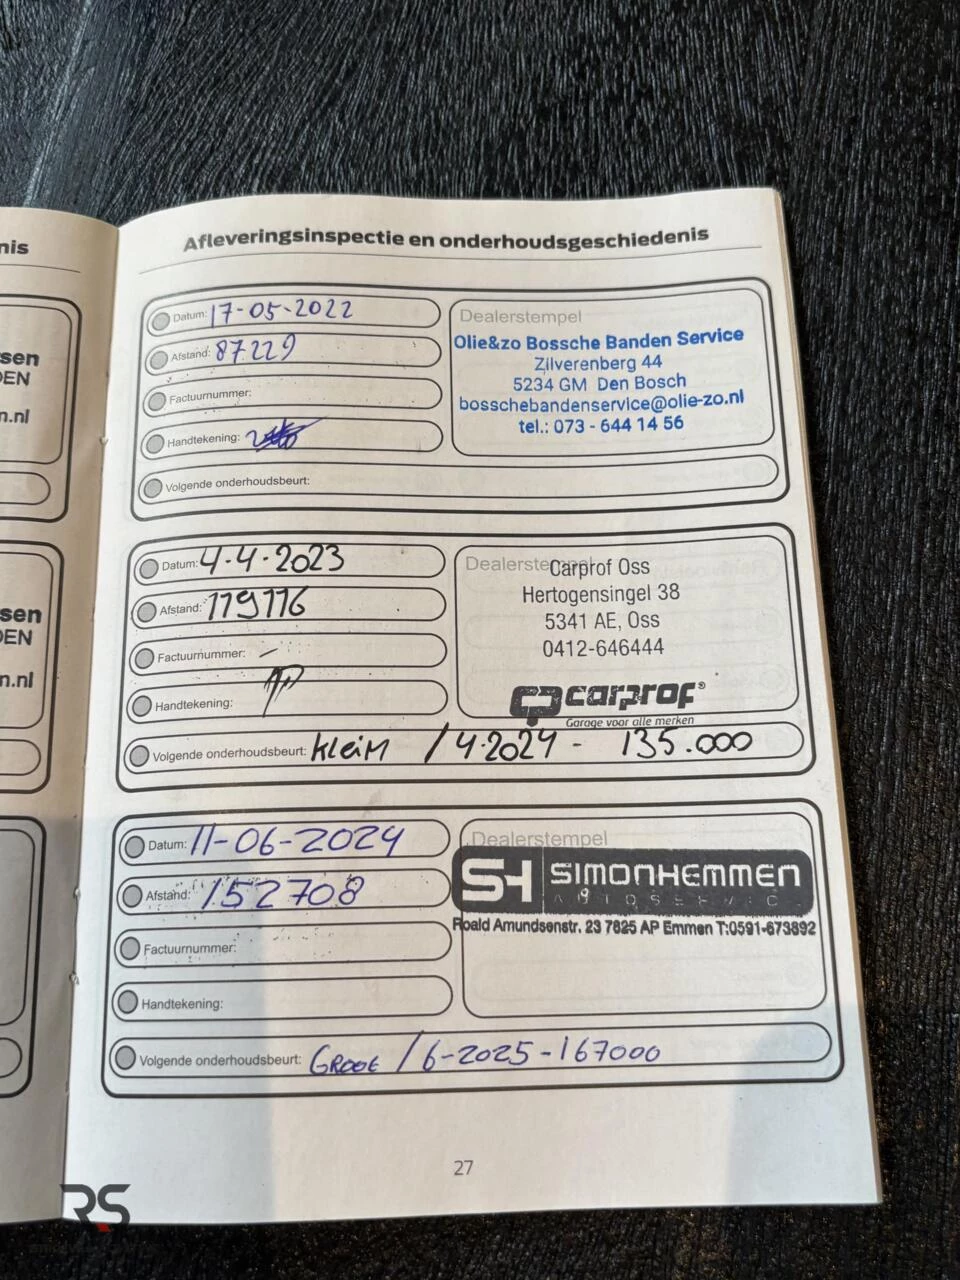 nis
Afleveringsinspectie en onderhoudsgeschiedenis
sen
DEN
n.nl
Datum: 17-05-2022
Afstand: 87229
Factuurnummer:
Handtekening:
Volgende onderhoudsbeurt:
Dealerstempel
Olie&zo Bossche Banden Service
Zilverenberg 44
5234 GM Den Bosch
bosschebandenservice@olie-zo.nl
tel.: 073 - 644 14 56
sen
DEN
n.nl
Datum: 4-4-2023
Afstand: 119116
Factuurnummer: -
Handtekening:
Volgende onderhoudsbeurt: Klein / 4-2024 - 135.000
Dealerstempel
Carprof Oss
Hertogensingel 38
5341 AE, Oss
0412-646444
carprof®
Garage voor alle merken
Datum: 11-06-2024
Afstand: 152708
Factuurnummer:
Handtekening:
Volgende onderhoudsbeurt: GROTE / 6-2025-167000
Dealerstempel
SH SIMONHEMMEN
Roald Amundsenstr. 23 7825 AP Emmen T:0591-673892
27
RS